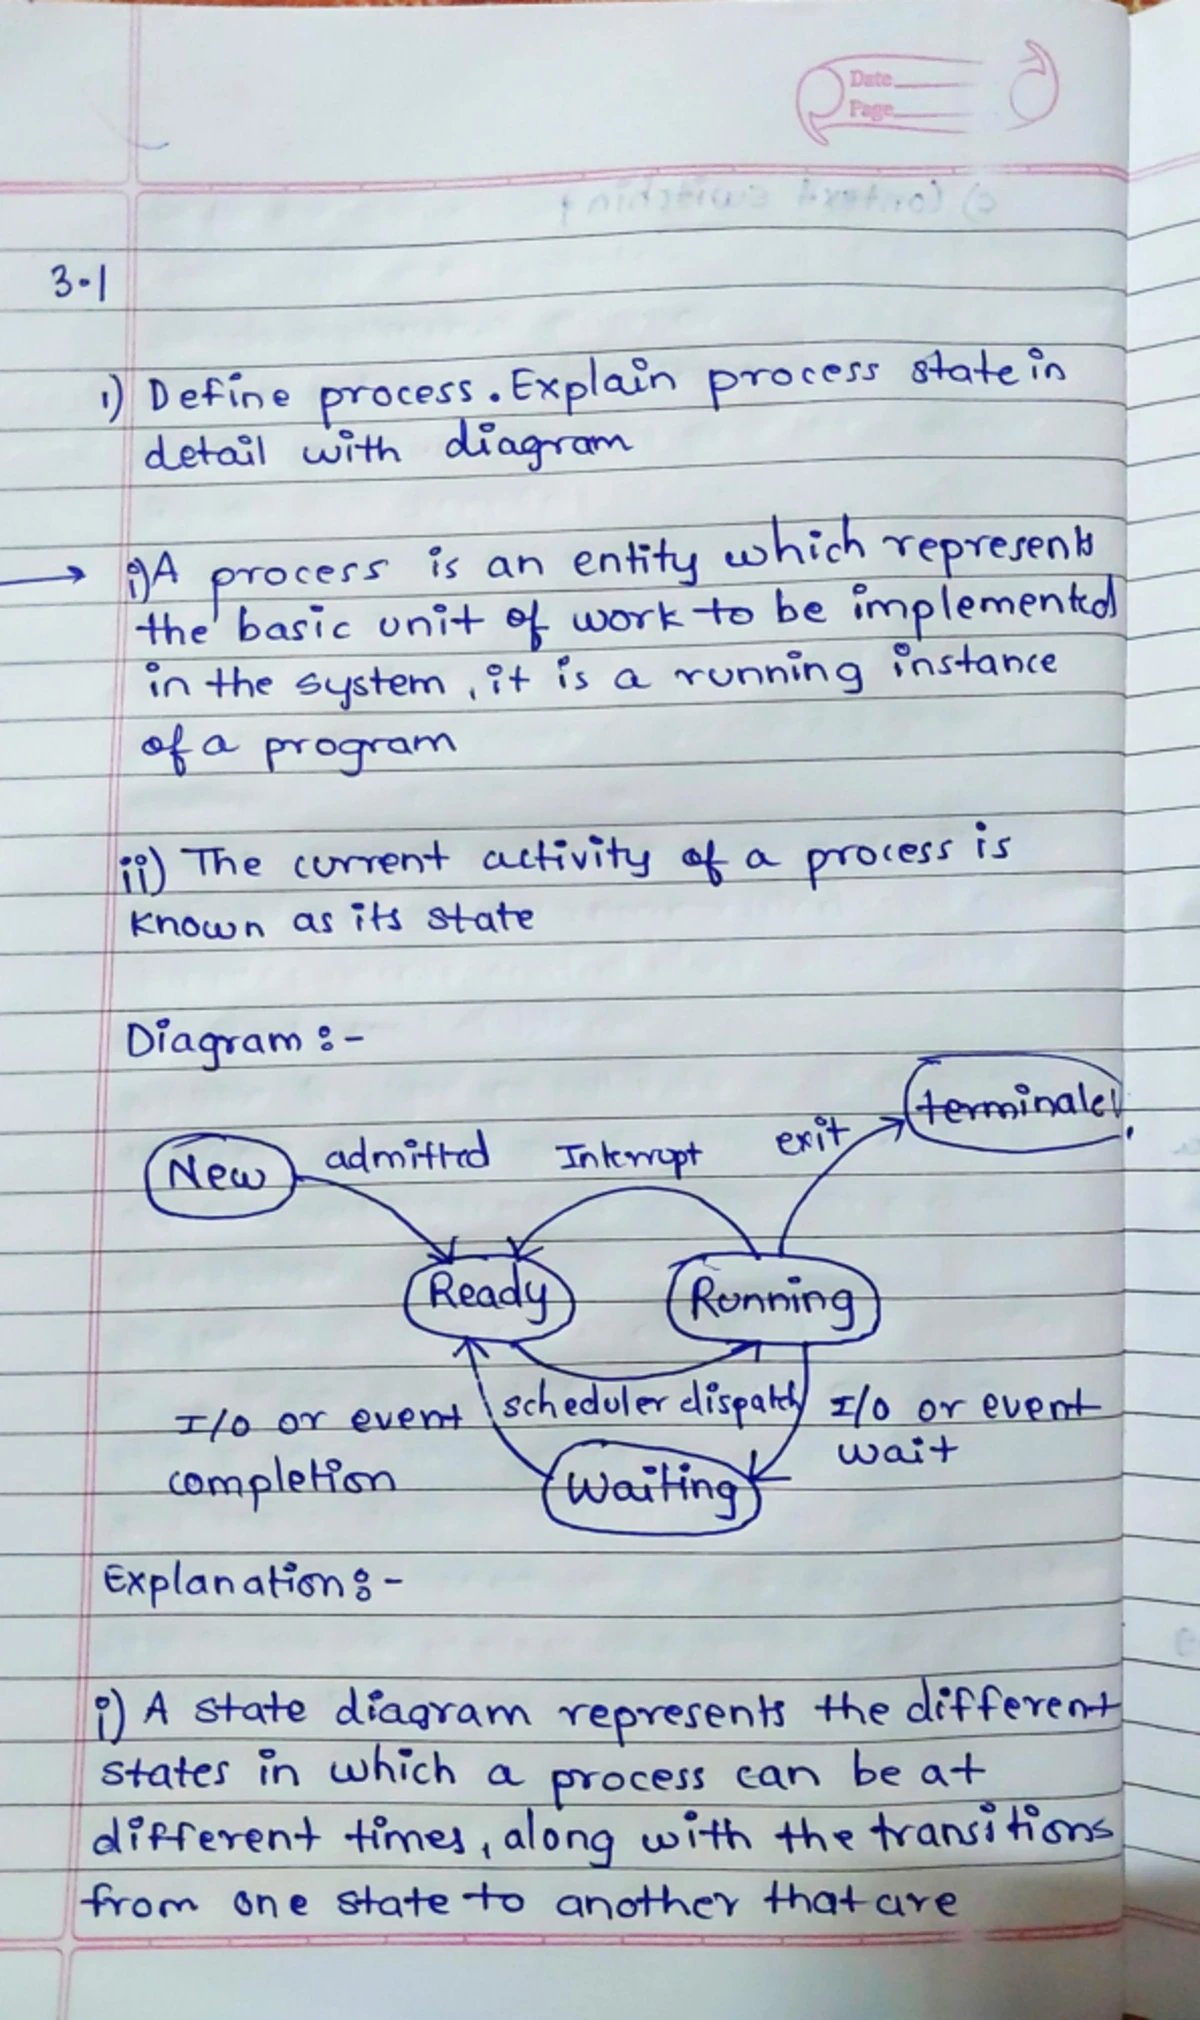 Date
Page
c) Context switching
3.1
1) Define process. Explain process state in
detail with diagram
→ i) A process is an entity which represents
the basic unit of work to be implemented
in the system, it is a running instance
of a program
ii) The current activity of a process is
known as its state
Diagram :-
terminated
New admitted Interrupt exit
Ready Running
scheduler dispatch
I/O or event I/O or event
completion wait
Waiting
Explanation :-
i) A state diagram represents the different
states in which a process can be at
different times, along with the transitions
from one state to another that are